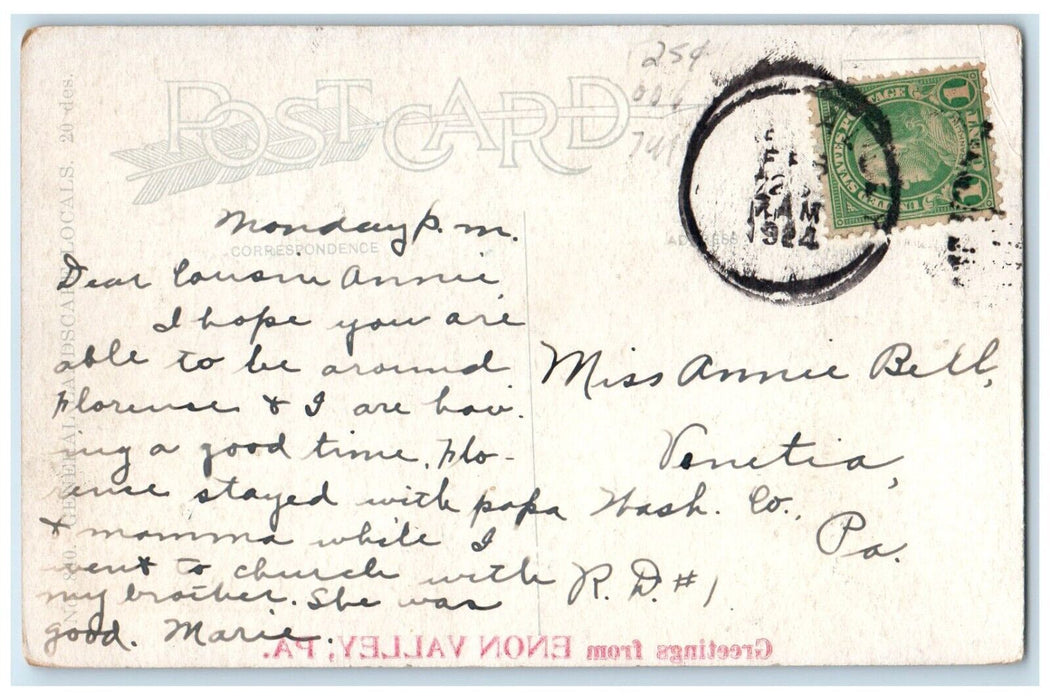 POST CARD
25¢
Monday P. M.
CORRESPONDENCE
Dear Cousin Annie,
I hope you are
able to be around
Florense & I are hav-
ing a good time. Flo-
rense stayed with papa
& mamma while I
went to church with
my brother. She was
good. Marie.
AM
1924
1
1
Miss Annie Bell,
Venetia,
Wash. Co.,
Pa.
R. D. #1
Greetings from ENON VALLEY, PA.
NO. 830. GENERAL LANDSCAPE LOCALS, 20 des.